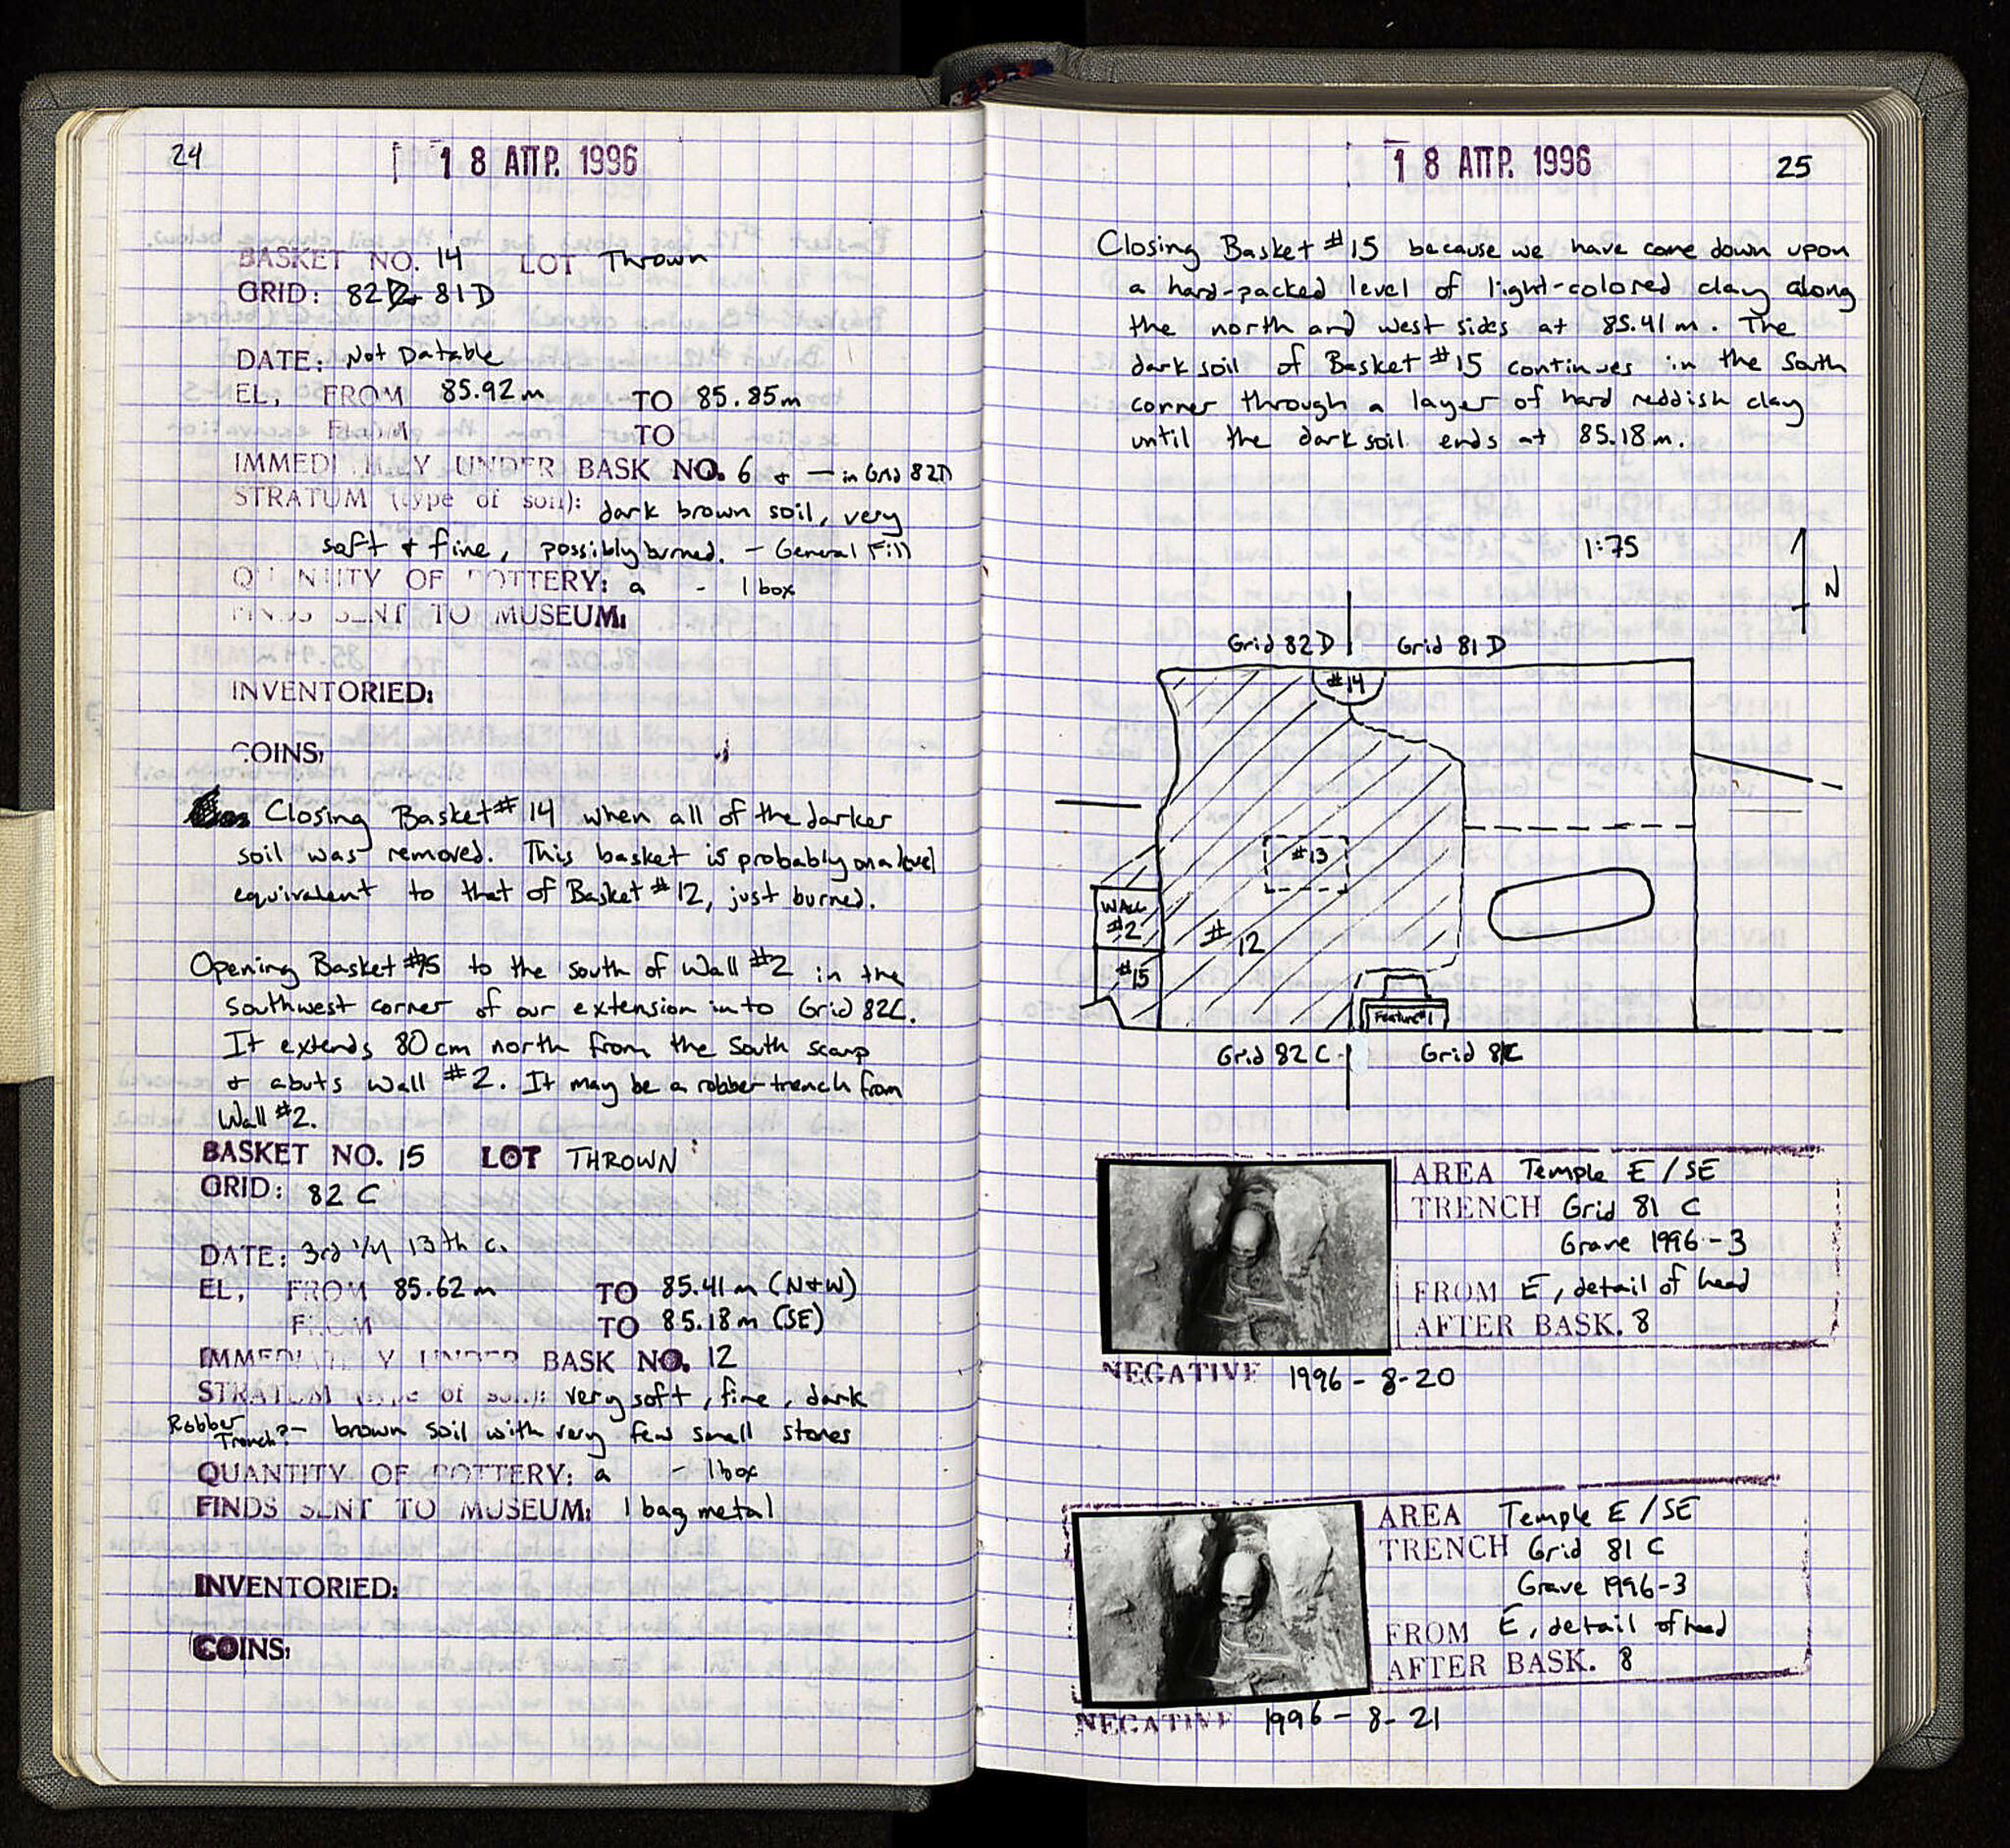 24
18 ΑΠΡ. 1996
BASKET NO. 14 LOT Thrown
GRID: 82D + 81D
DATE: Not Datable
EL, FROM 85.92m TO 85.85m
FROM TO
IMMEDIATELY UNDER BASK NO. 6 + — in Grid 82D
STRATUM (type of soil): dark brown soil, very
soft + fine, possibly burned. - General Fill
QUANTITY OF POTTERY: a - 1 box
FINDS SENT TO MUSEUM:
INVENTORIED:
COINS:
Closing Basket #14 when all of the darker
soil was removed. This basket is probably on a level
equivalent to that of Basket #12, just burned.
Opening Basket #15 to the south of Wall #2 in the
southwest corner of our extension into Grid 82C.
It extends 80cm north from the South scarp
+ abuts Wall #2. It may be a robber trench from
Wall #2.
BASKET NO. 15 LOT THROWN
GRID: 82 C
DATE: 3rd 1/4 13th c.
EL, FROM 85.62m TO 85.41m (N+W)
FROM TO 85.18m (SE)
IMMEDIATELY UNDER BASK NO. 12
STRATUM (type of soil): very soft, fine, dark
Robber Trench? - brown soil with very few small stones
QUANTITY OF POTTERY: a - 1 box
FINDS SENT TO MUSEUM: 1 bag metal
INVENTORIED:
COINS:
18 ΑΠΡ. 1996
25
Closing Basket #15 because we have come down upon
a hard-packed level of light-colored clay along
the north and west sides at 85.41m. The
dark soil of Basket #15 continues in the south
corner through a layer of hard reddish clay
until the dark soil ends at 85.18m.
1:75
N
Grid 82D Grid 81D
#14
#13
WALL
#2
#12
#15
Feature #1
Grid 82C Grid 81C
AREA Temple E/SE
TRENCH Grid 81 C
Grave 1996-3
FROM E, detail of head
AFTER BASK. 8
NEGATIVE 1996-8-20
AREA Temple E/SE
TRENCH Grid 81 C
Grave 1996-3
FROM E, detail of head
AFTER BASK. 8
NEGATIVE 1996-8-21